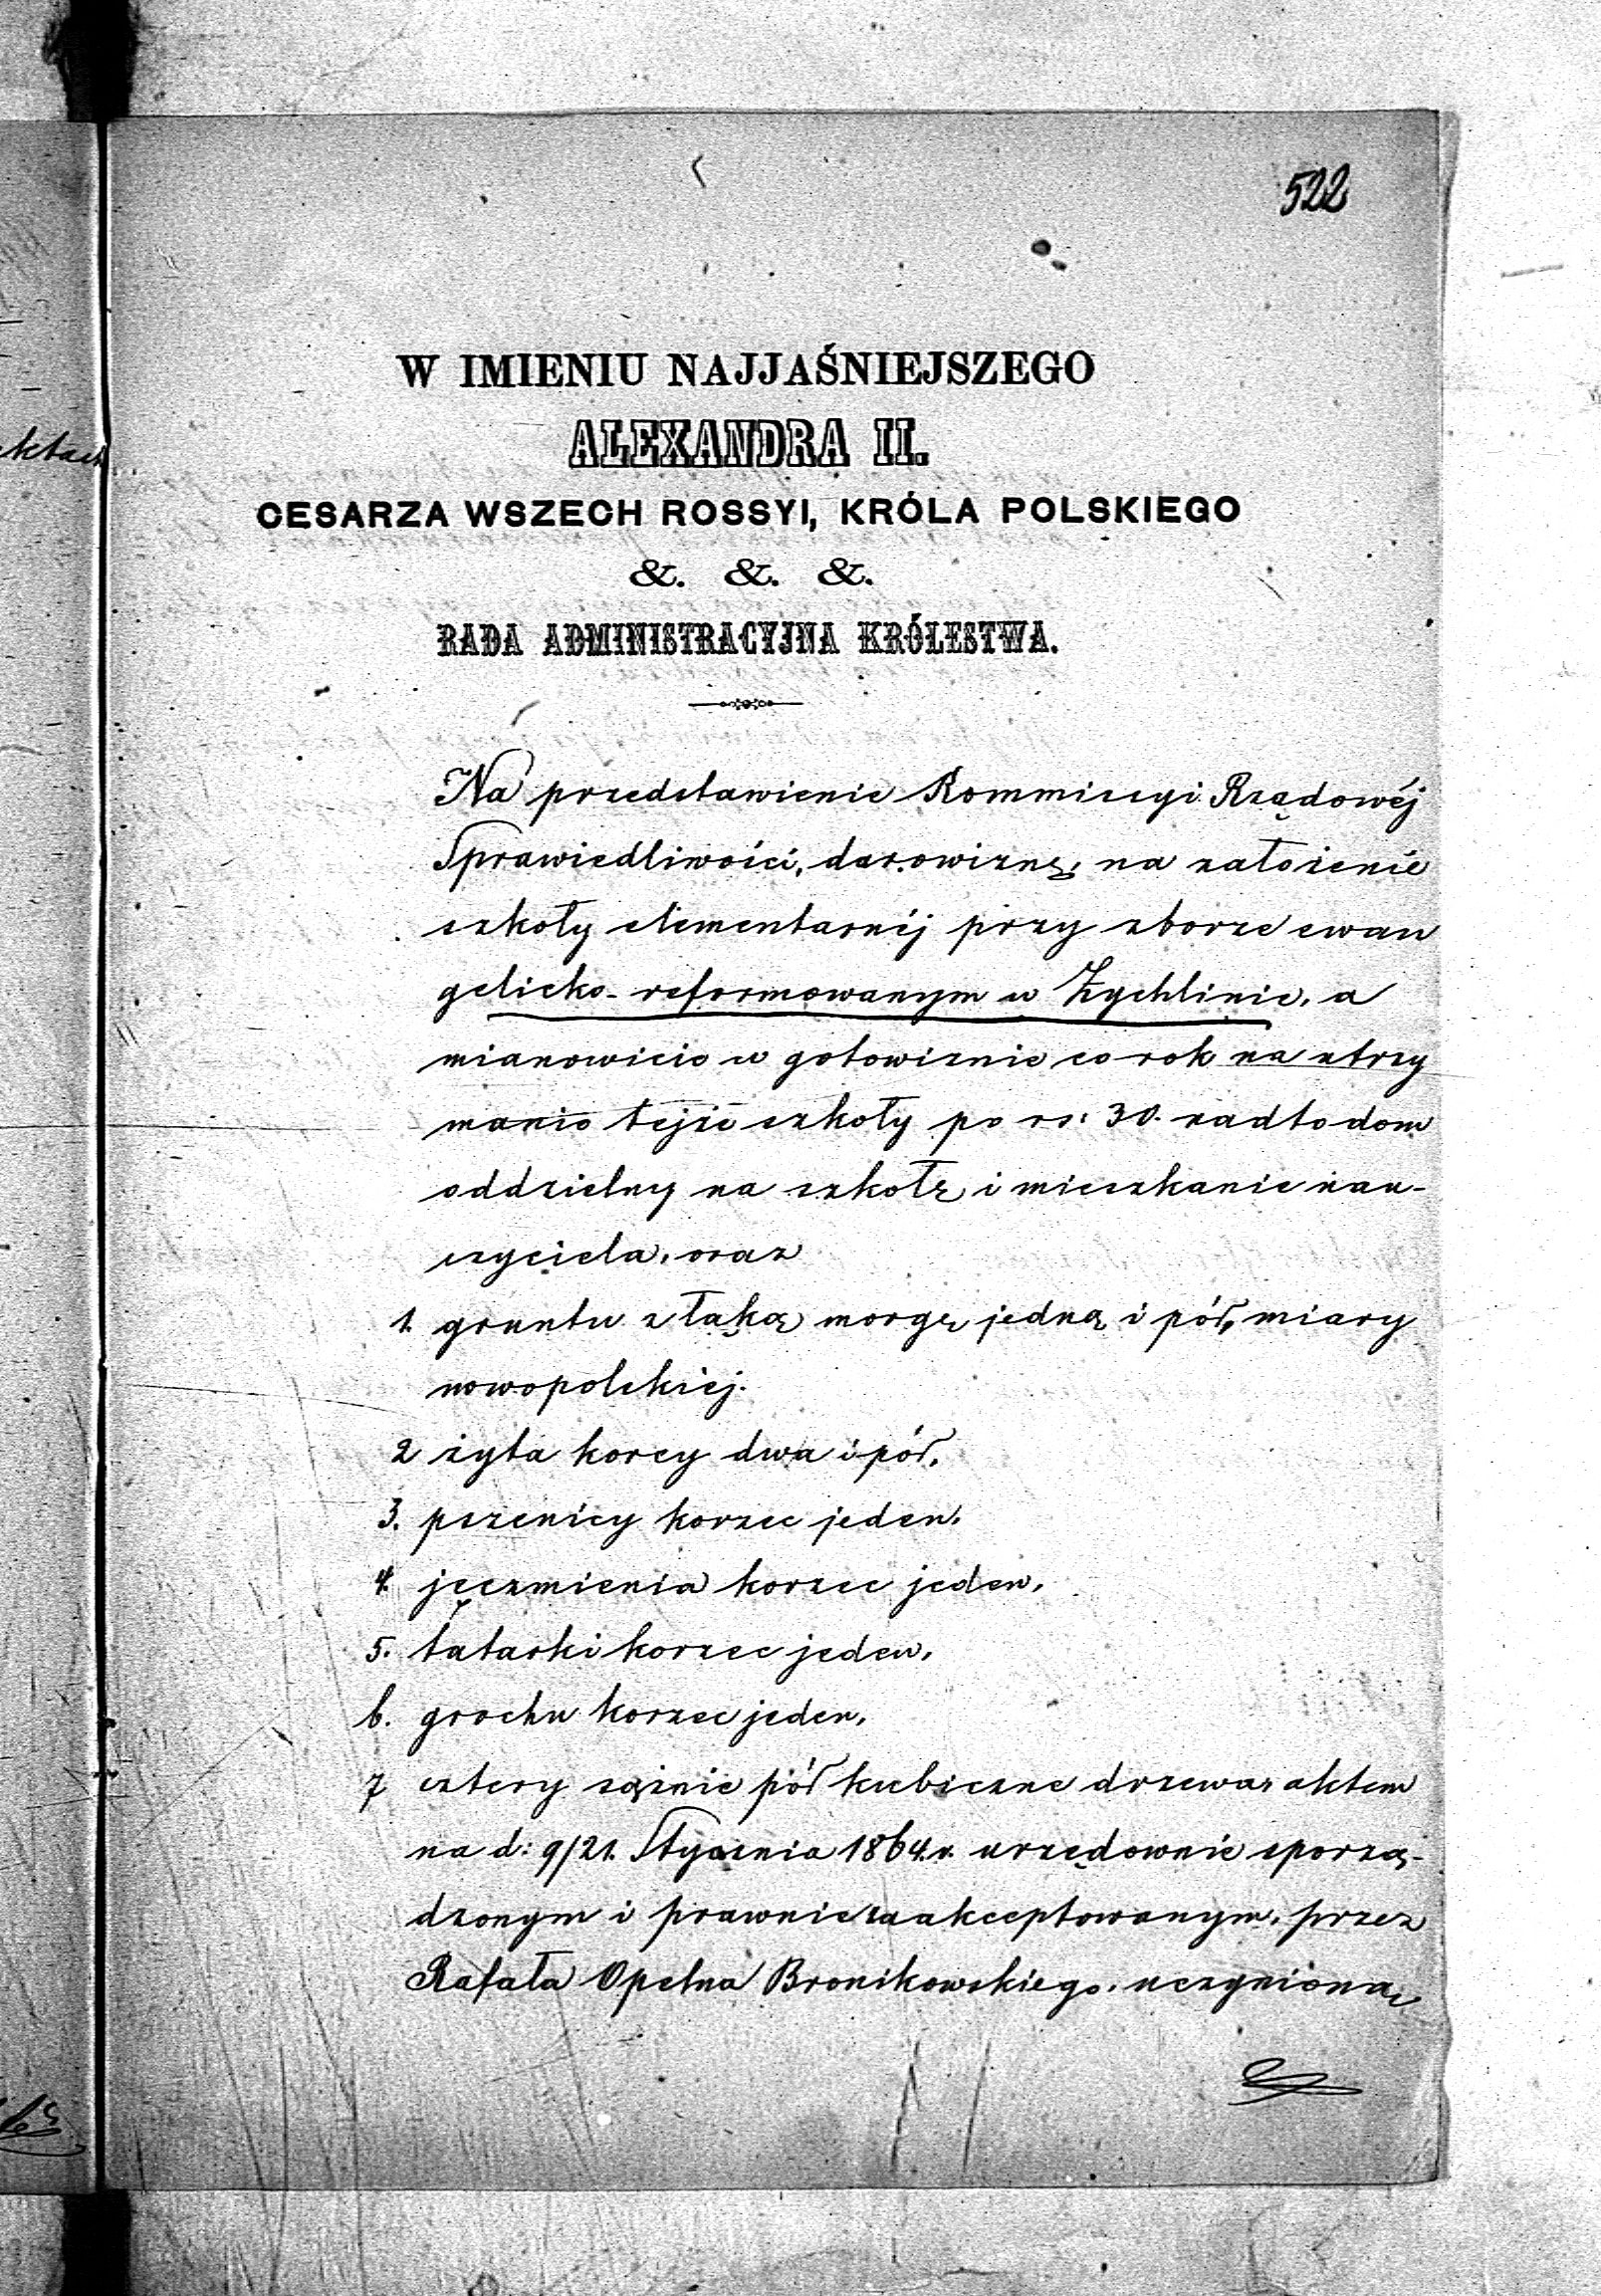 522
W IMIENIU NAJJAŚNIEJSZEGO
ALEXANDRA II.
CESARZA WSZECH ROSSYI, KRÓLA POLSKIEGO
&. &. &.
RADA ADMINISTRACYJNA KRÓLESTWA.
Na przedstawienie Kommissyi Rządowéj
Sprawiedliwości, darowiznę, na założenie
szkoły elementarnéj przy zborze ewan
gelicko-reformowanym w Żychlinie, a
mianowicie w gotowiznie co rok na utrzy
manie tejże szkoły po rs: 30. nadto dom
oddzielny na szkołę i mieszkanie nau-
czyciela, oraz
1. gruntu z łąką morgę jedną i pół, miary
nowopolskiej.
2 żyta korcy dwa i pół,
3. pszenicy korzec jeden,
4. jęczmienia korzec jeden,
5. tatarki korzec jeden,
6. grochu korzec jeden,
7 cztery sążnie półkubiczne drzewa, aktem
na d: 9/21. Stycznia 1864. r. urzędownie sporzą-
dzonym i prawnie zaakceptowanym, przez
Rafała Opelna Bronikowskiego, uczynioną
ktach